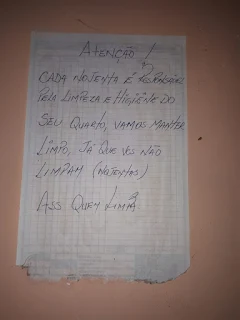 ATENÇÃO!
CADA NOJENTA É RESPONSÁVEL
PELA LIMPEZA E HIGIENE DO
SEU QUARTO, VAMOS MANTER
LIMPO, JÁ QUE VOS NÃO
LIMPAM (NOJENTAS)
ASS QUEM LIMPA